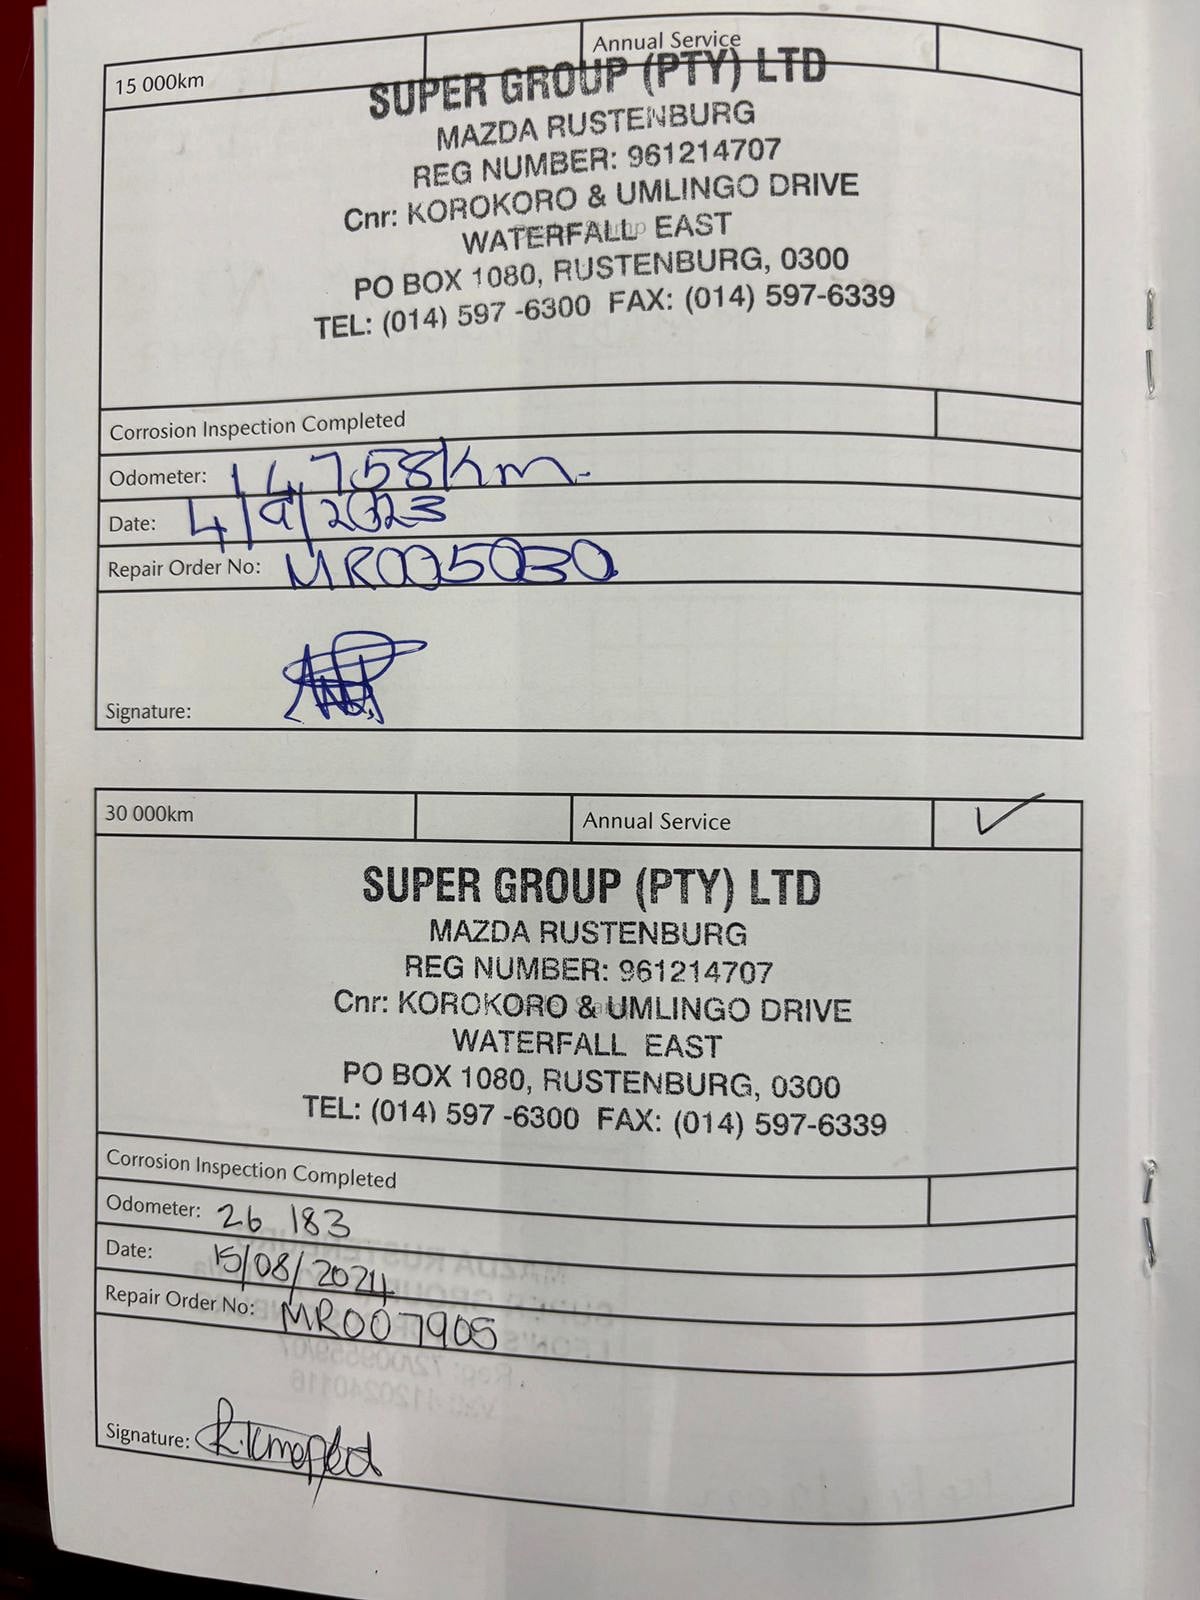 15 000km Annual Service
SUPER GROUP (PTY) LTD
MAZDA RUSTENBURG
REG NUMBER: 961214707
Cnr: KOROKORO & UMLINGO DRIVE
WATERFALL EAST
PO BOX 1080, RUSTENBURG, 0300
TEL: (014) 597 -6300 FAX: (014) 597-6339
Corrosion Inspection Completed
Odometer: 14,758km
Date: 4/9/2023
Repair Order No: MR005030
Signature:
30 000km Annual Service
SUPER GROUP (PTY) LTD
MAZDA RUSTENBURG
REG NUMBER: 961214707
Cnr: KOROKORO & UMLINGO DRIVE
WATERFALL EAST
PO BOX 1080, RUSTENBURG, 0300
TEL: (014) 597 -6300 FAX: (014) 597-6339
Corrosion Inspection Completed
Odometer: 26 183
Date: 15/08/2024
Repair Order No: MR007905
Signature: